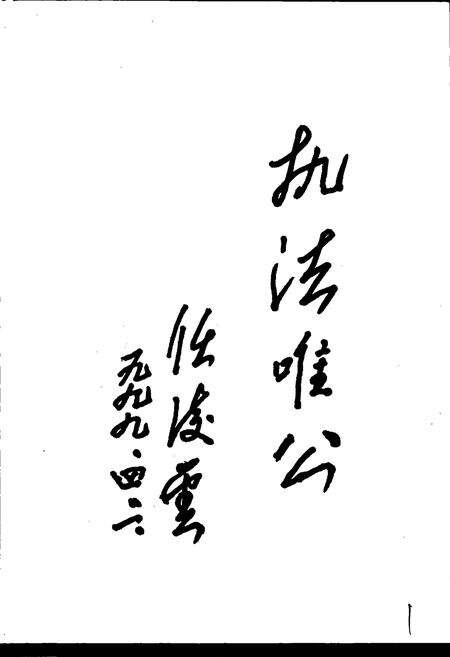 执法唯公
任凌雲
一九九九、四、二